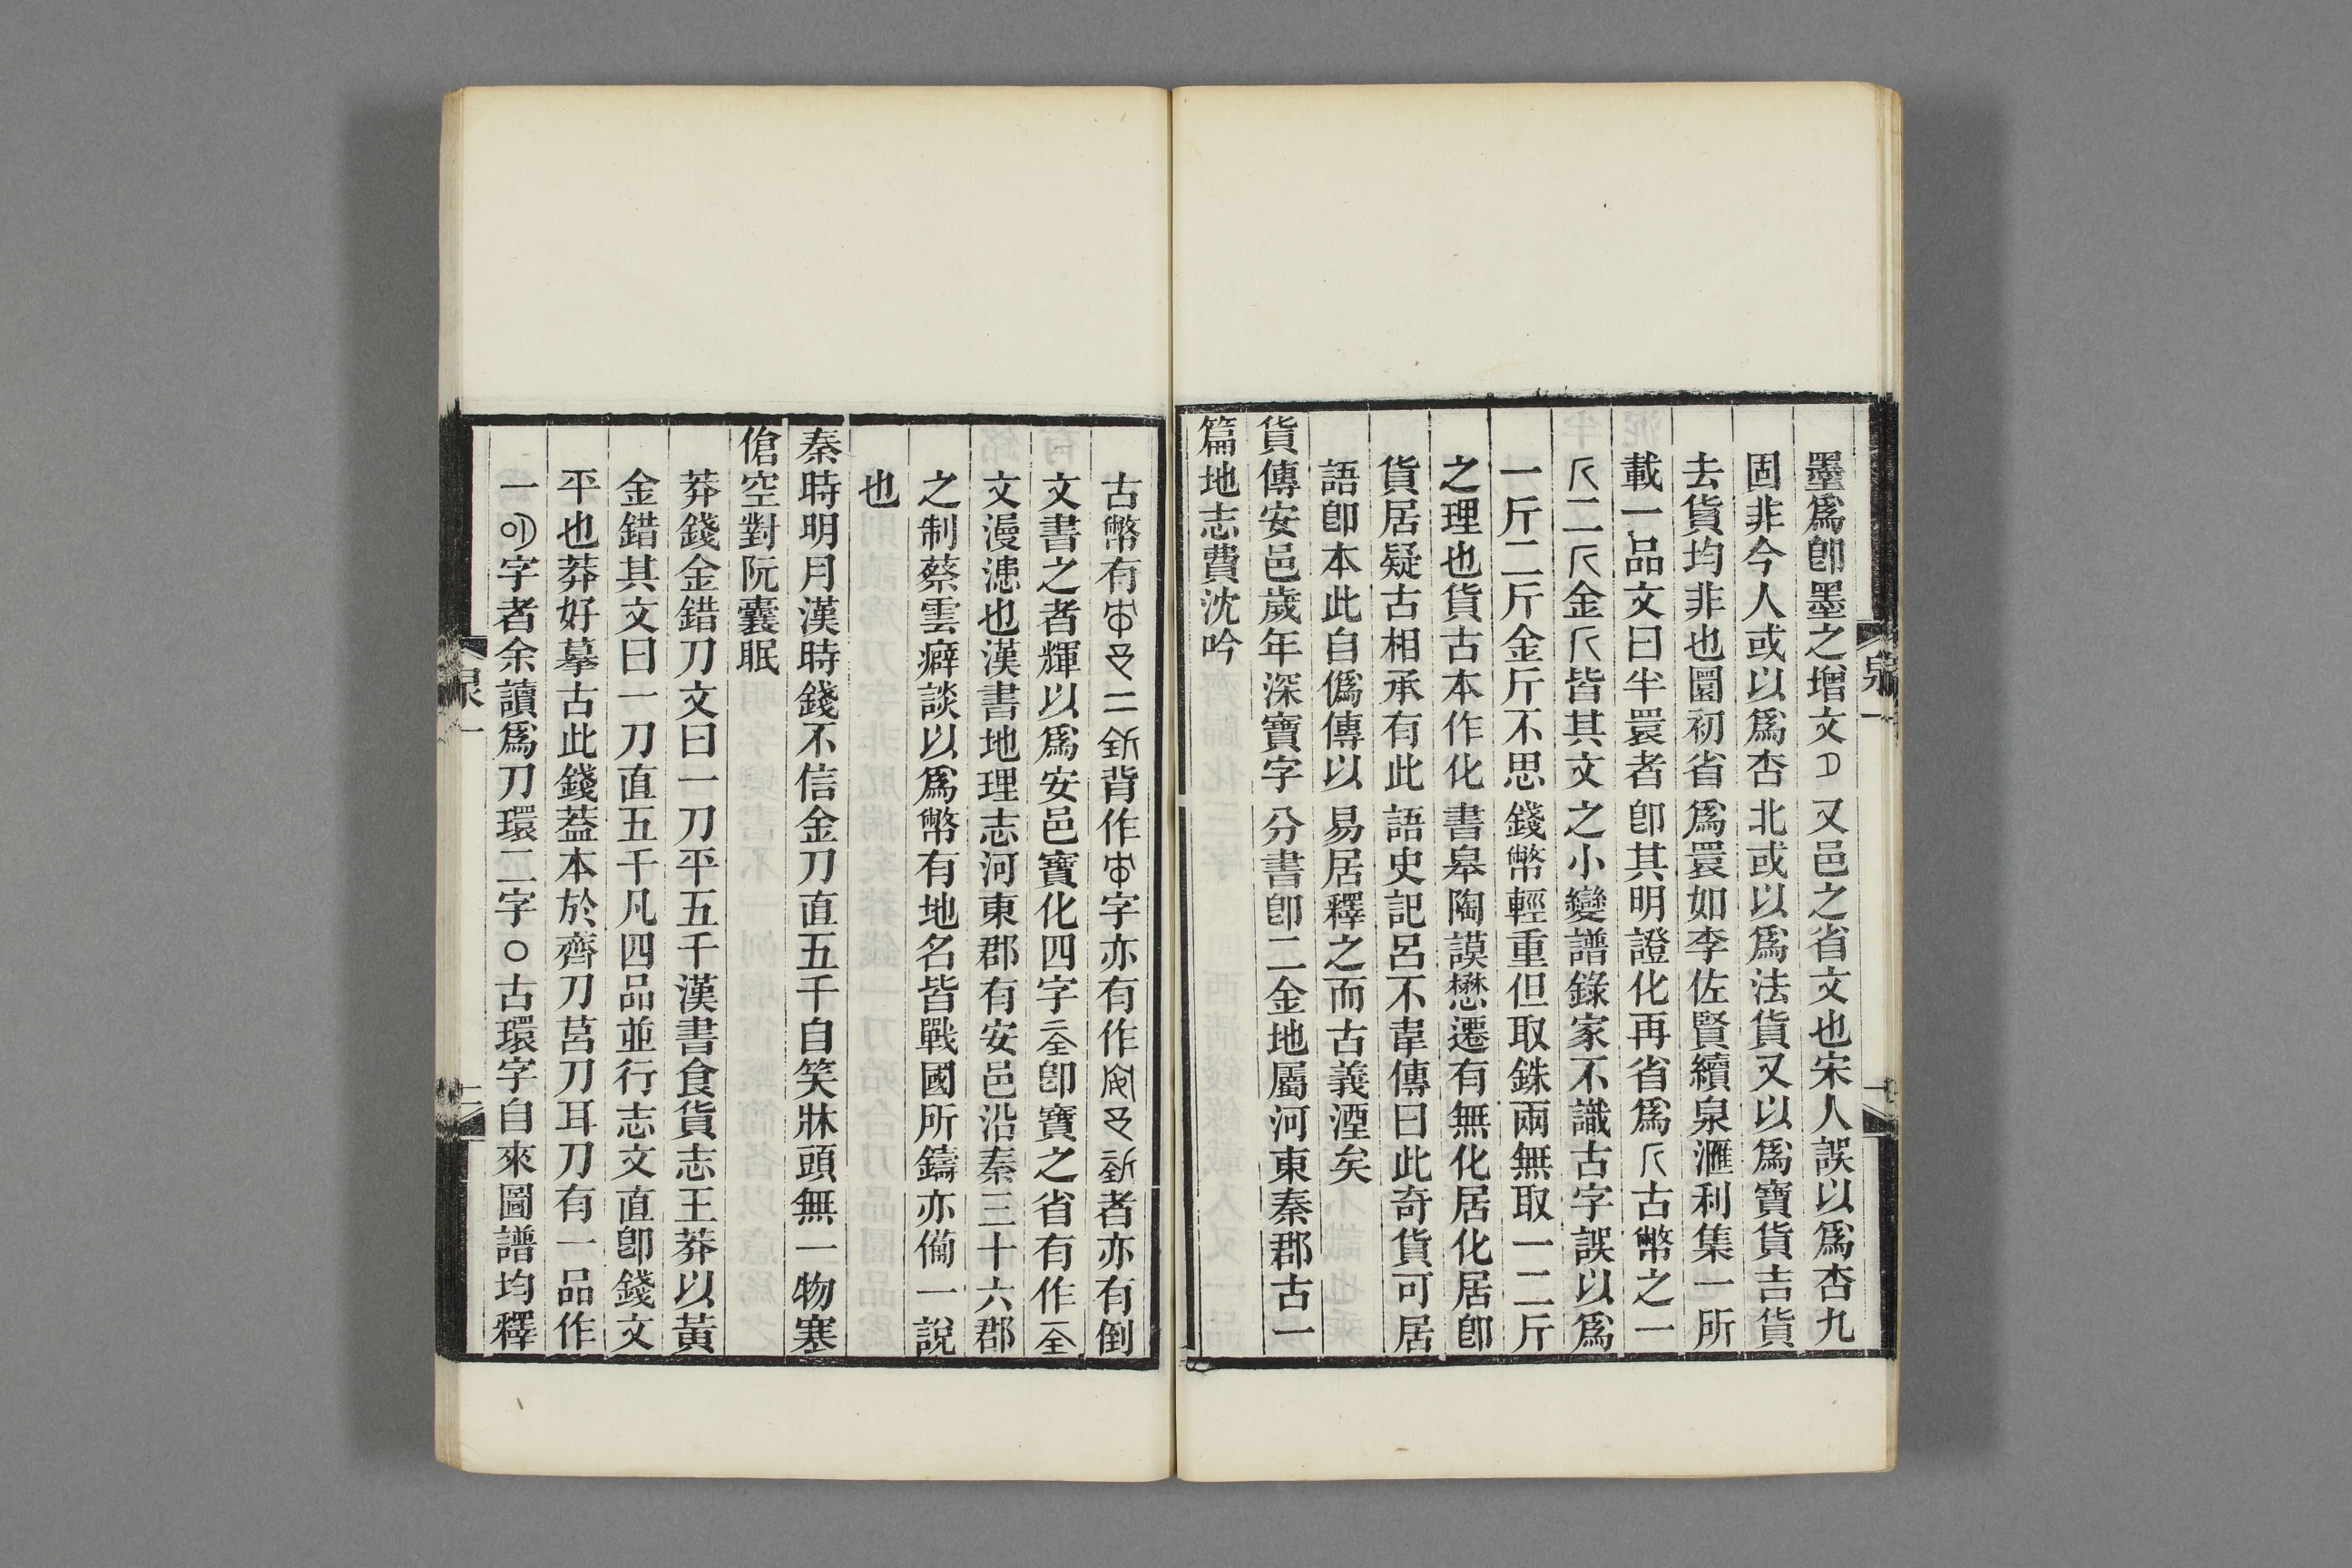 墨爲卽墨之增文又邑之省文也宋人誤以爲杏九
固非今人或以爲杏北或以爲法貨又以爲寶貨吉貨
去貨均非也圜初省爲睘如李佐賢續泉滙利集一所
載一品文曰半睘者卽其明證化再省爲𠂆古幣之一
𠂆二𠂆金𠂆皆其文之小變譜錄家不識古字誤以爲
一斤二斤金斤不思錢幣輕重但取銖兩無取一二斤
之理也貨古本作化書皋陶謨懋遷有無化居化居卽
貨居疑古相承有此語史記呂不韋傳曰此奇貨可居
語卽本此自僞傳以易居釋之而古義湮矣
貨傳安邑歲年深寶字分書卽二金地屬河東秦郡古一
篇地志費沈吟
泉一
古幣有二釿背作字亦有作者亦有倒
文書之者輝以爲安邑寶化四字二全卽寶之省有作一全
文漫漶也漢書地理志河東郡有安邑沿秦三十六郡
之制蔡雲癖談以爲幣有地名皆戰國所鑄亦備一說
也
秦時明月漢時錢不信金刀直五千自笑牀頭無一物寒
傖空對阮囊眠
莽錢金錯刀文曰一刀平五千漢書食貨志王莽以黃
金錯其文曰一刀直五千凡四品並行志文直卽錢文
平也莽好摹古此錢葢本於齊刀莒刀耳刀有一品作
一字者余讀爲刀環二字〇古環字自來圖譜均釋
泉一
二